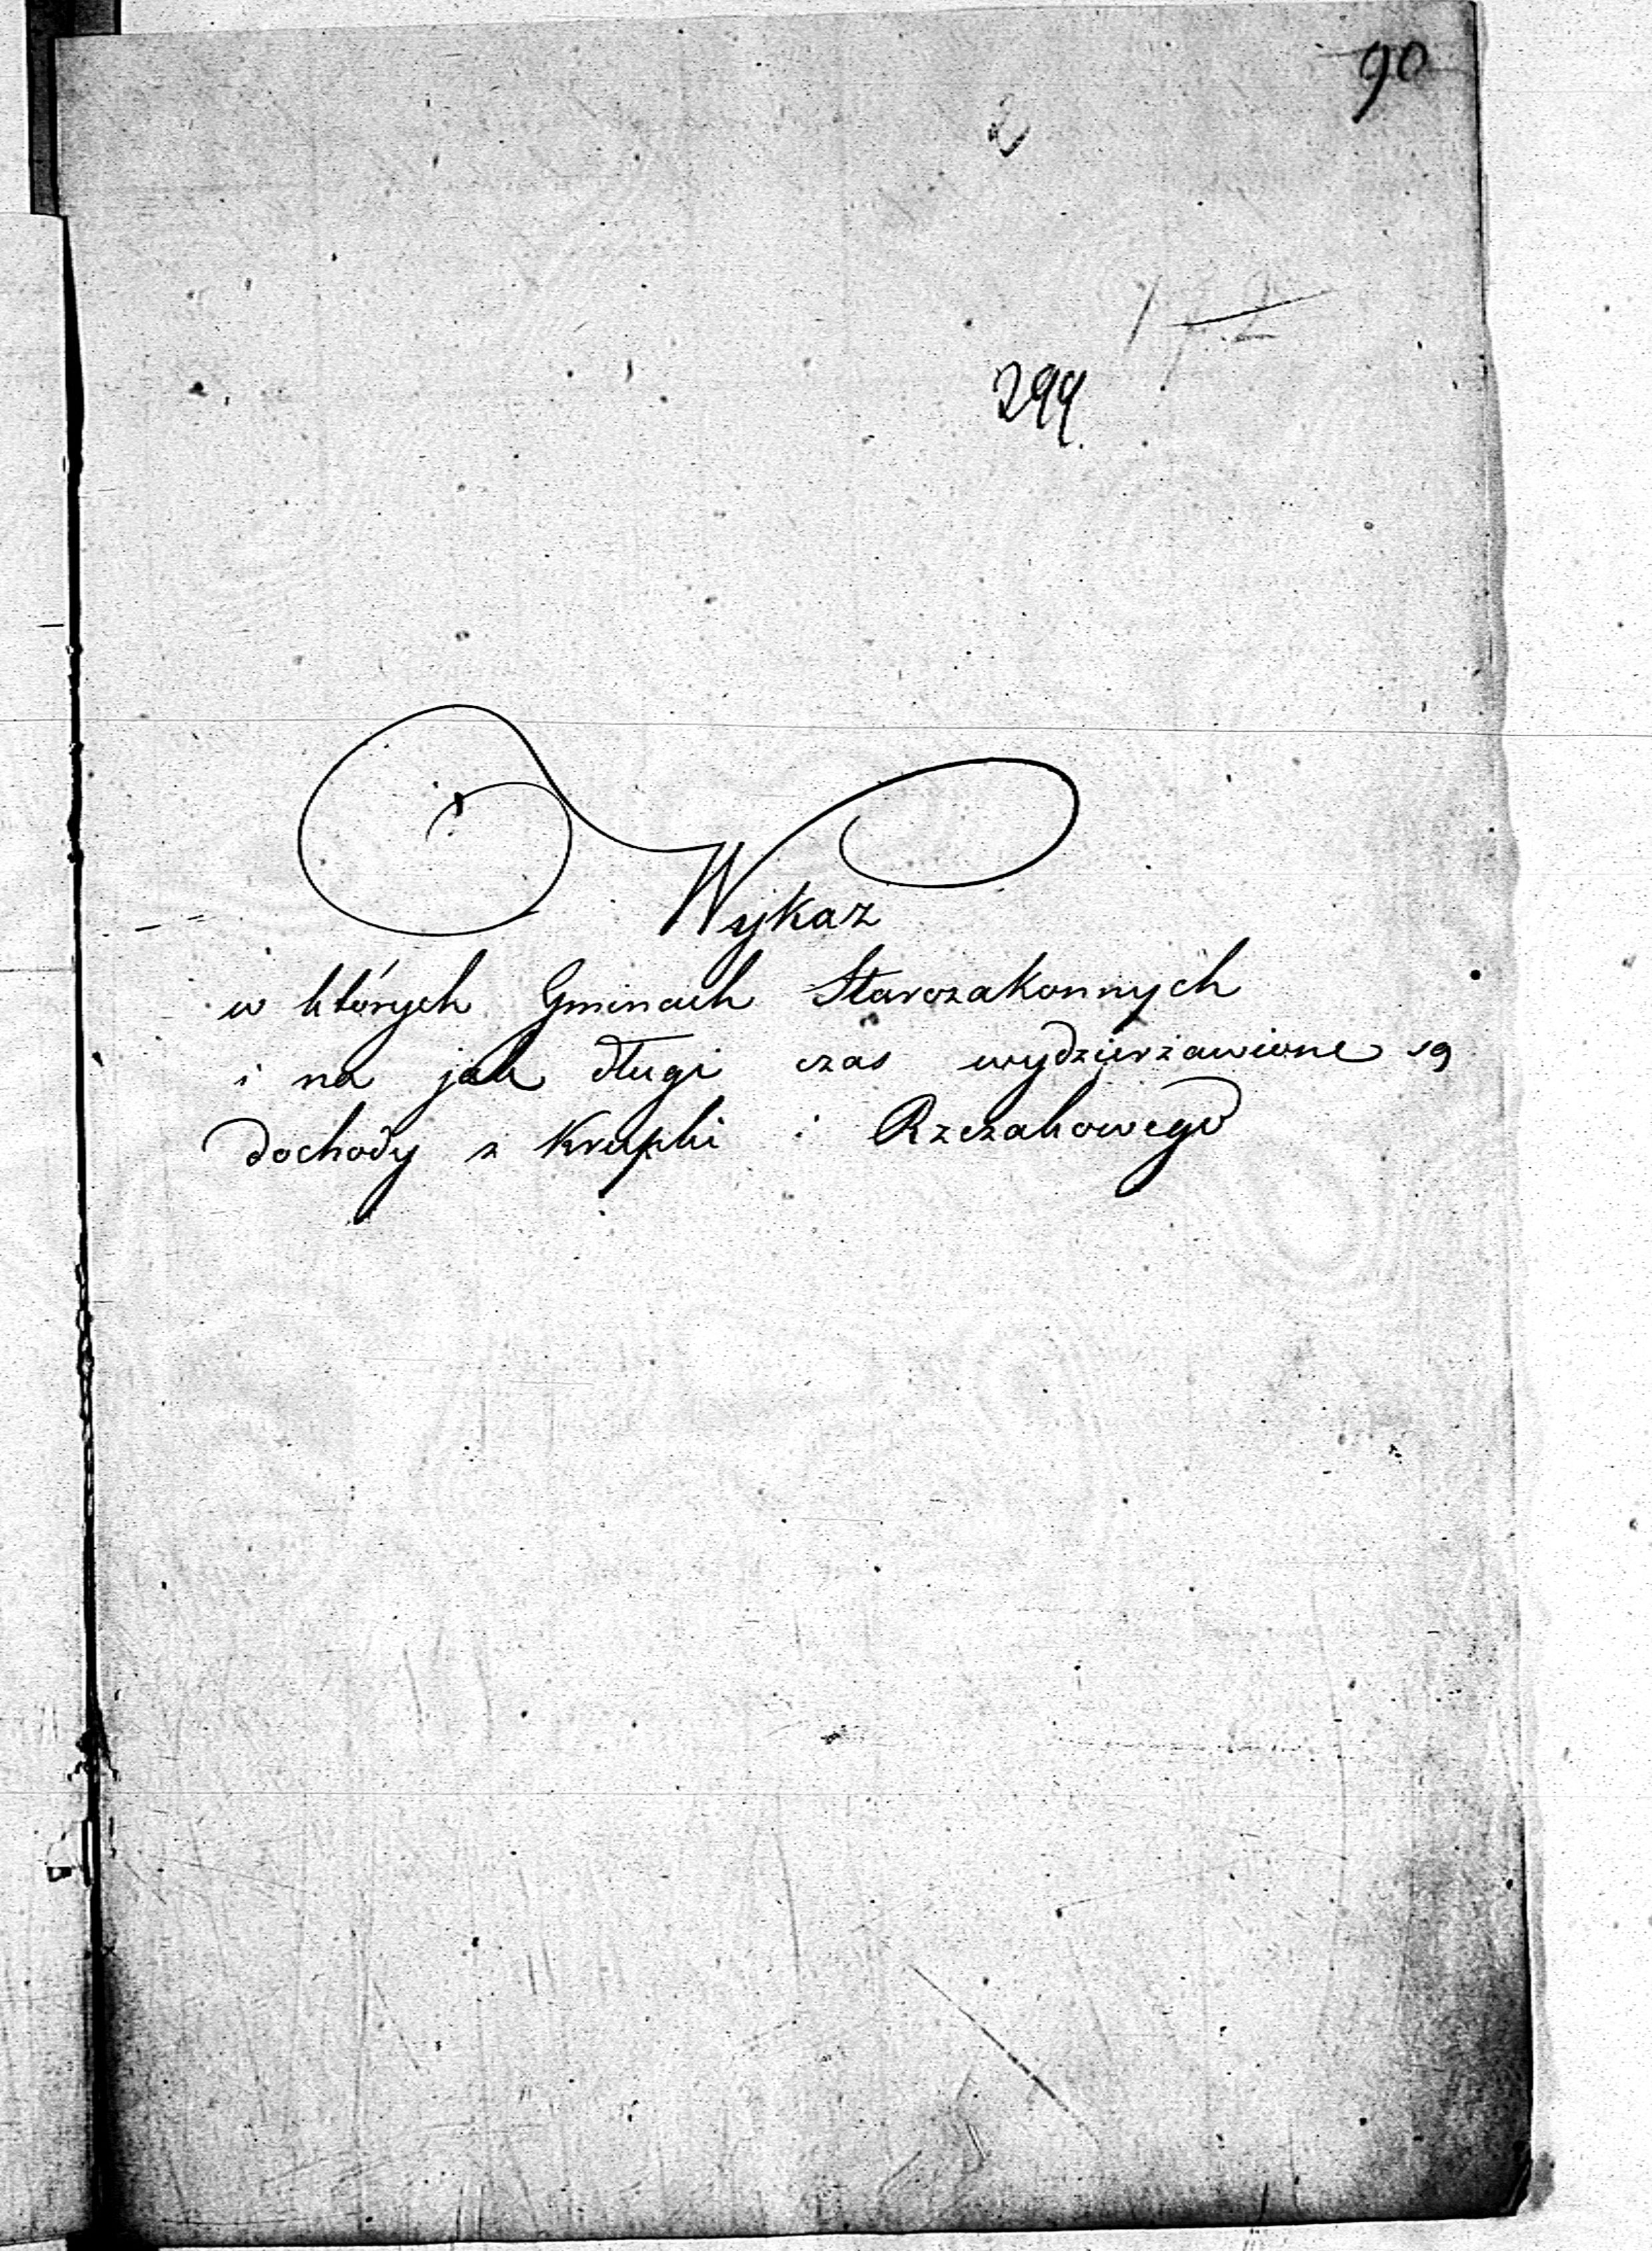 90
2
299.
Wykaz
w których Gminach Starozakonnych
i na jak długi czas wydzierżawione są
dochody z Krupki i Rzezakowego